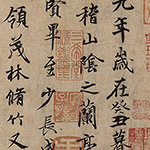 元年歲在癸丑暮
稽山陰之蘭亭
賢畢至少長咸
領茂林脩竹又